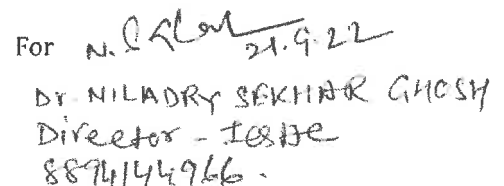 For N. S. Ghosh 21.9.22
Dr. NILADRY SEKHAR GHOSH
Director -
8894144966.